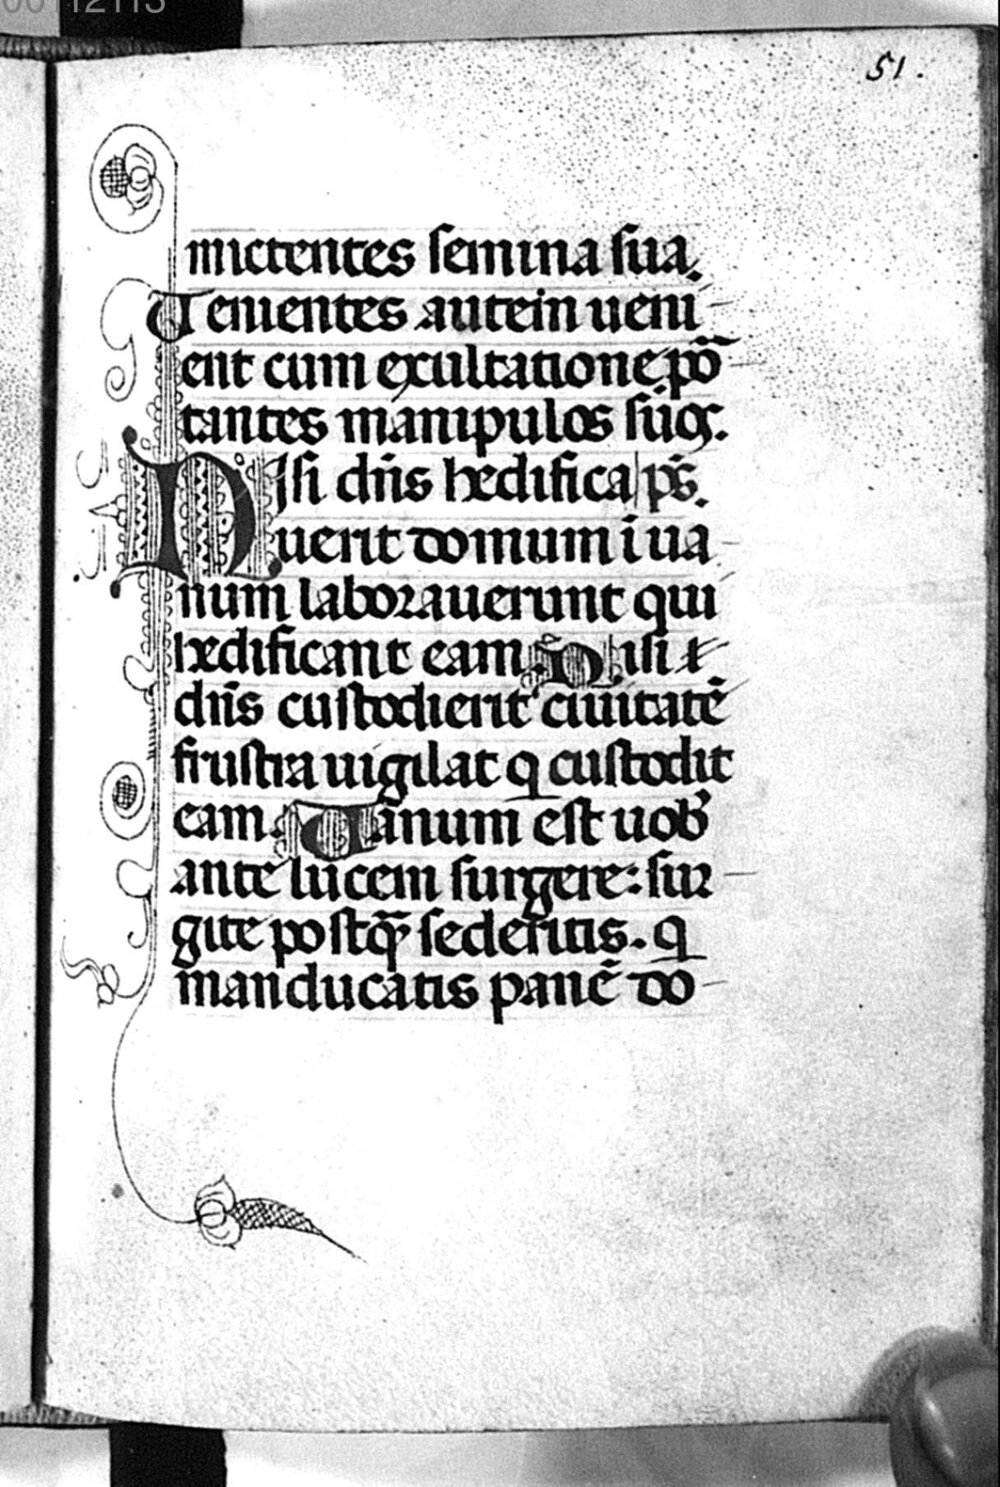 00112113
51.
mictentes semina sua.
Venientes autem ueni
ent cum exultatione põ
tantes manipulos suos.
Nisi dñs hedifica p̃s.
uerit domum i ua
num laborauerunt qui
hedificant eam. Nisi
dñs custodierit ciuitatẽ
frustra uigilat q custodit
eam. Vanum est uob
ante lucem surgere: sur
gite postq̃ sederitis. q
manducatis panẽ do